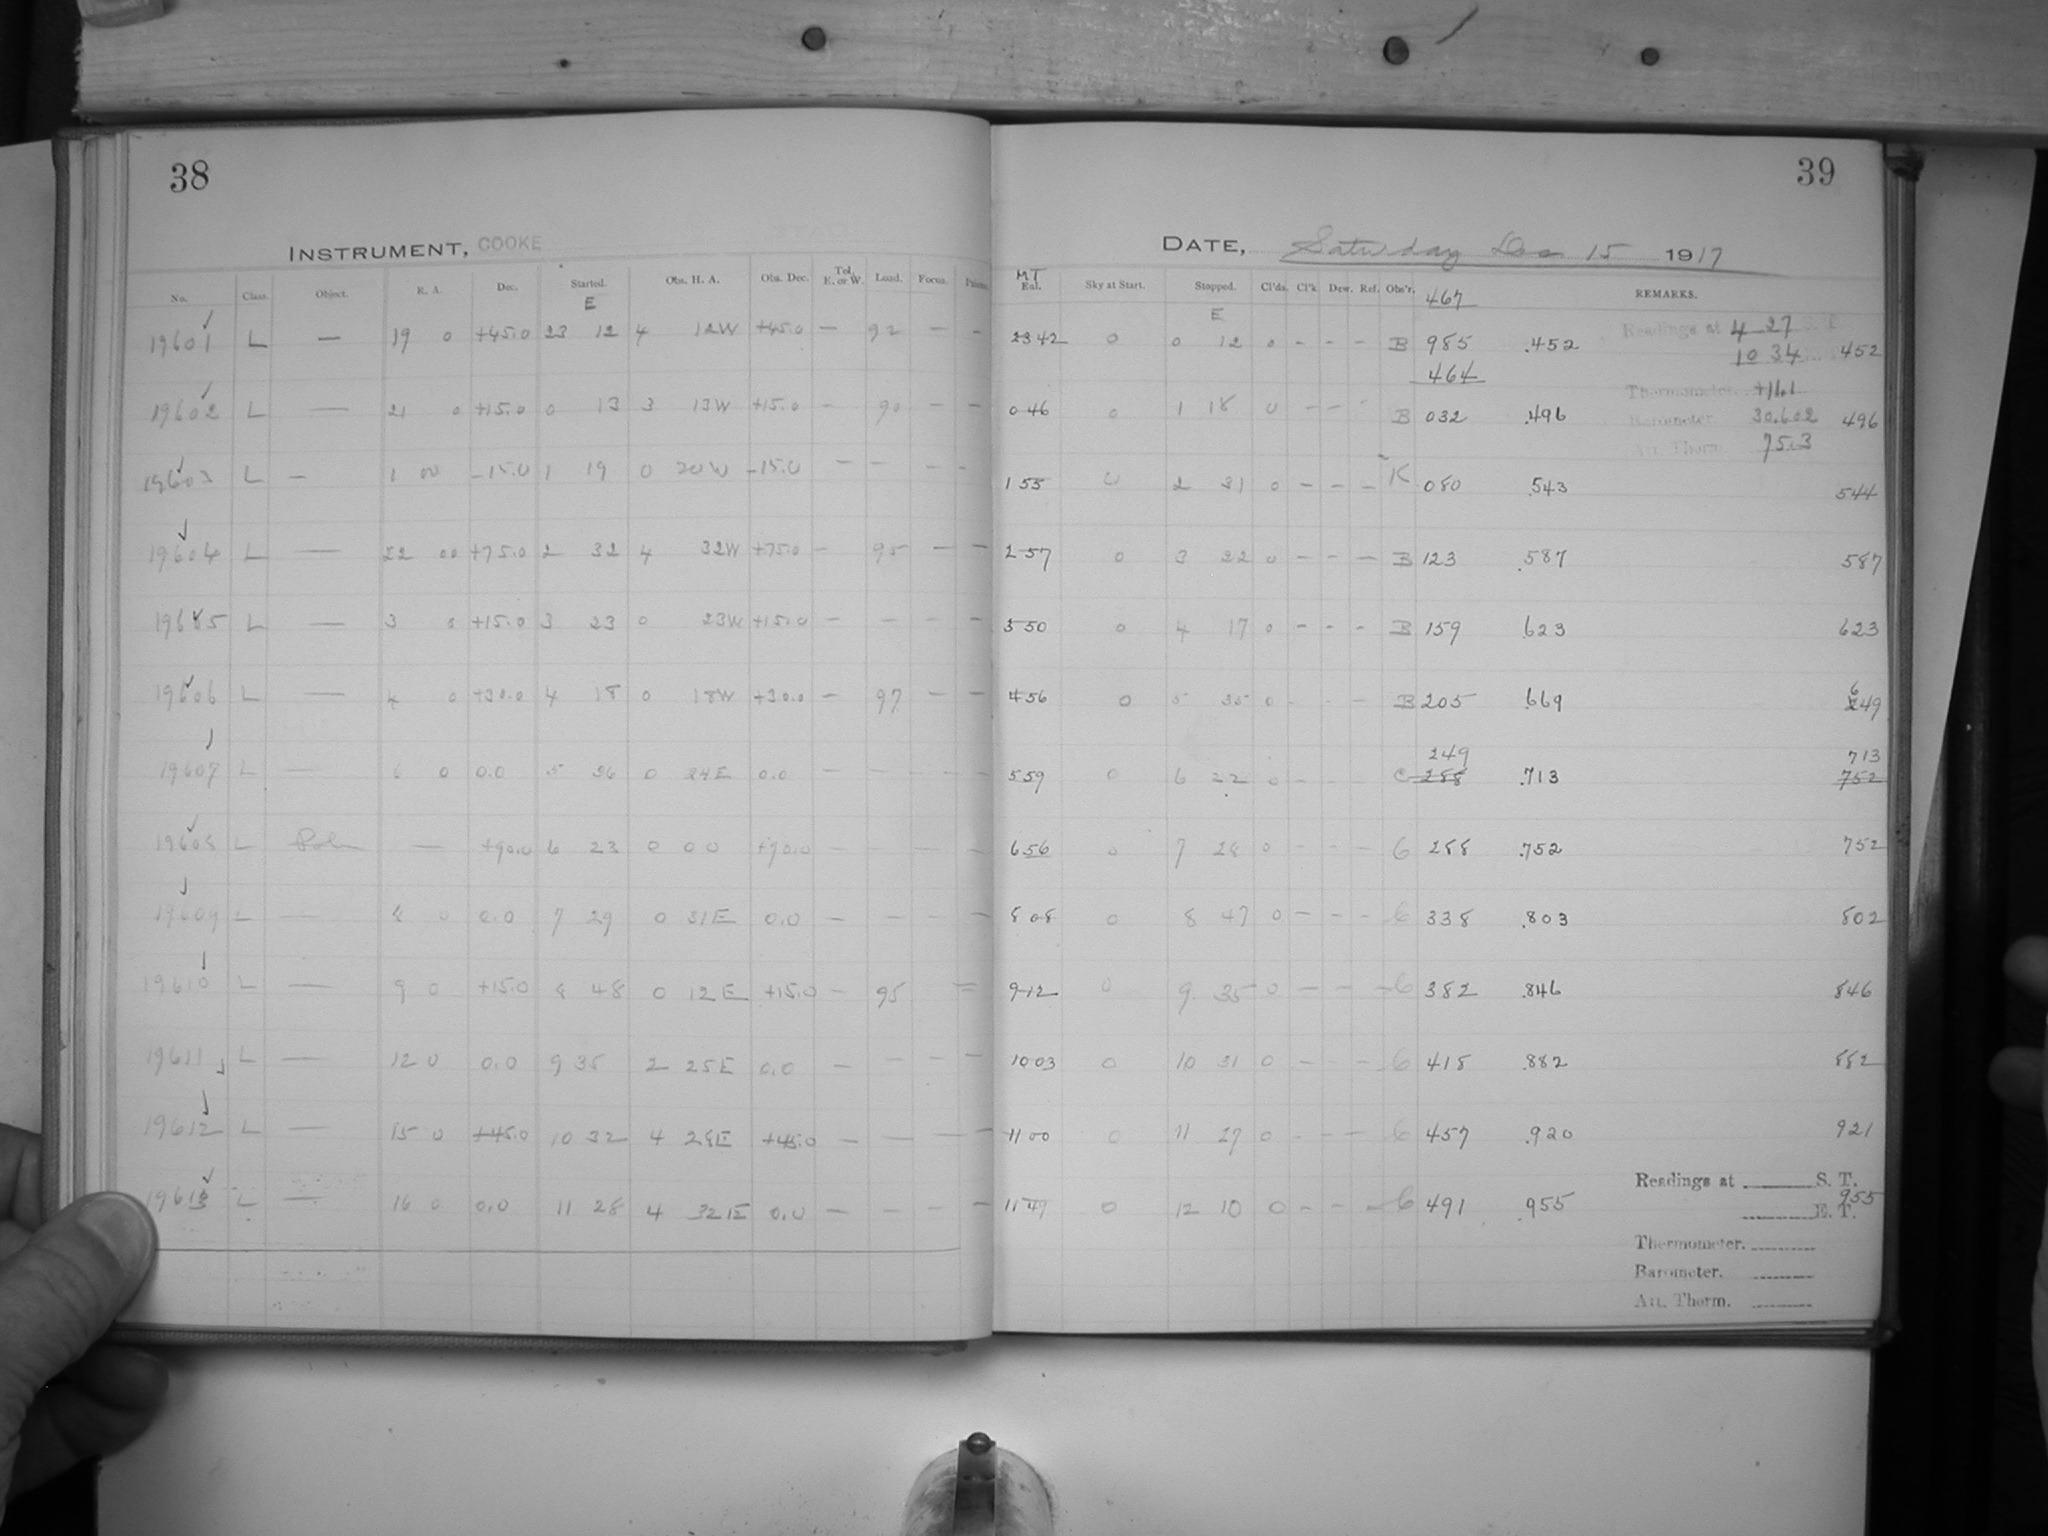 38
INSTRUMENT, COOKE
No. Class. Object. R. A. Dec. Started. Obs. H. A. Obs. Dec. Tel. E. or W. Load. Focus.
E
19601 L — 19 0 +45.0 23 12 4 12W +45.0 — 92 — —
19602 L — 21 0 +15.0 0 13 3 13W +15.0 — 90 — —
19603 L — 1 00 -15.0 1 19 0 20W -15.0 — — — —
19604 L — 22 00 +75.0 2 32 4 32W +75.0 — 95 — —
19605 L — 3 0 +15.0 3 23 0 23W +15.0 — — — —
19606 L — 4 0 +30.0 4 18 0 18W +30.0 — 97 — —
19607 L — 6 0 0.0 5 36 0 24E 0.0 — — — —
19608 L Pole — +90.0 6 23 0 00 +90.0 — — — —
19609 L — 8 0 0.0 7 29 0 31E 0.0 — — — —
19610 L — 9 0 +15.0 8 48 0 12E +15.0 — 95 —
19611 L — 12 0 0.0 9 35 2 25E 0.0 — — — —
19612 L — 15 0 +45.0 10 32 4 28E +45.0 — — — —
19613 L — 16 0 0.0 11 28 4 32E 0.0 — — — —
39
DATE, Saturday Dec 15 1917
M.T. Eal. Sky at Start. Stopped. Cl'ds. Cl'k Dew. Ref. Obs'r. 467 REMARKS.
E
23 42 0 0 12 0 - - - B 985 .452 452
464
0 46 0 1 18 0 - - - B 032 .496 496
1 55 0 2 31 0 - - - K 080 .543 544
2 57 0 3 22 0 - - - B 123 .587 587
3 50 0 4 17 0 - - - B 159 .623 623
4 56 0 5 35 0 - - - B 205 .669 649
249 713
5 59 0 6 22 0 - - C 288 .713 752
6 56 0 7 28 0 - - - C 288 .752 752
8 08 0 8 47 0 - - - C 338 .803 802
9 12 0 9 35 0 - - - C 382 .846 846
10 03 0 10 31 0 - - - C 418 .882 882
11 00 0 11 27 0 - - - C 457 .920 921
11 49 0 12 10 0 - - - C 491 .955 955
Readings at 4 27 S. T.
10 34
Thermometer. +11.1
Barometer. 30.602
Att. Therm. 75.3
Readings at S. T.
E. T.
Thermometer.
Barometer.
Att. Therm.